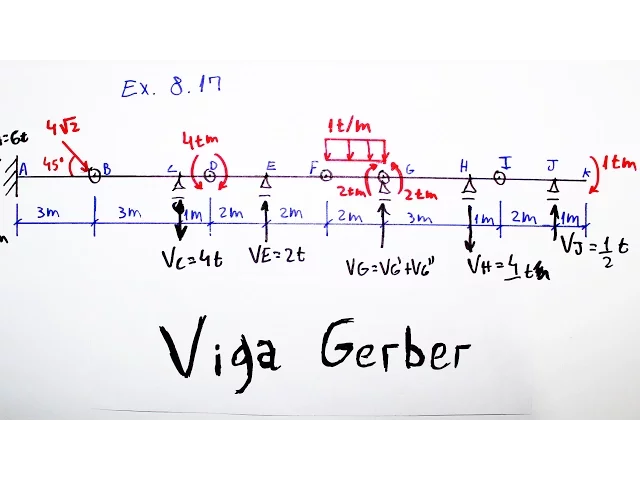 Ex. 8.17
4√2
4tm
1t/m
=6t
45°
A B C D E F G H I J K
1tm
2tm 2tm
3m 3m 1m 2m 2m 2m 3m 1m 2m 1m
VC=4t VE=2t VG=VG'+VG" VH=4 VJ=1/2t
Viga Gerber